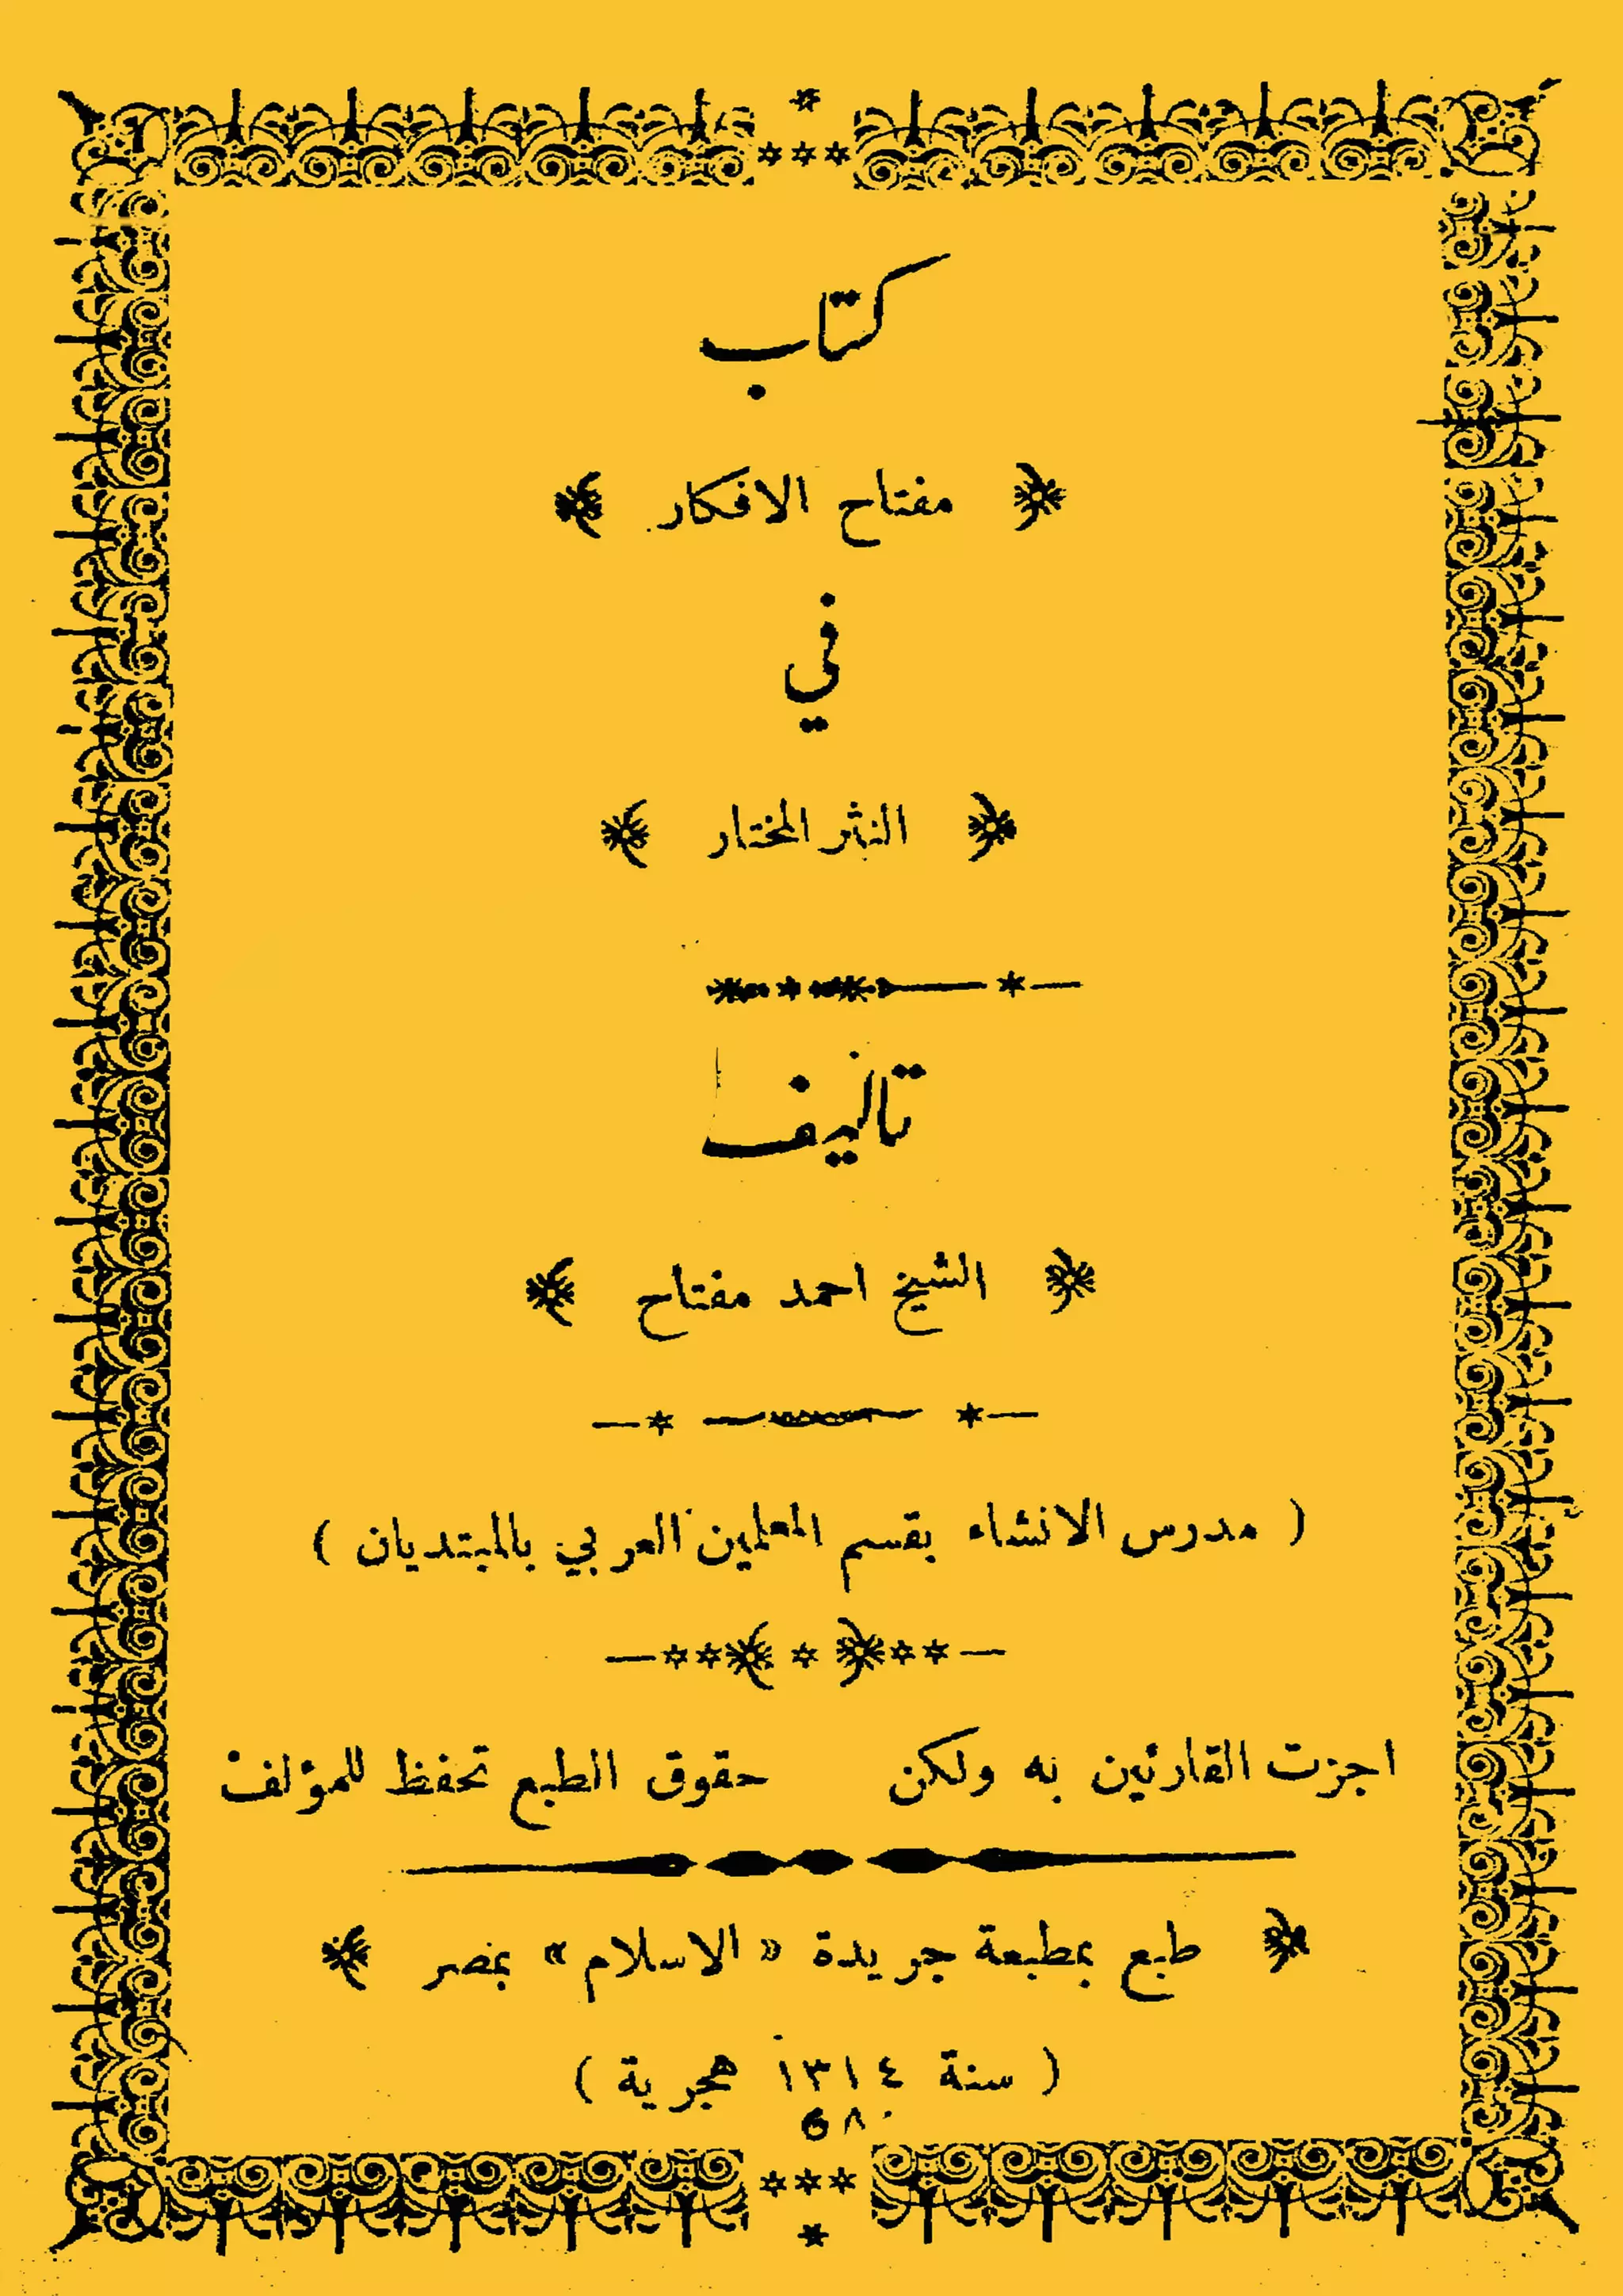 كتاب
مفتاح الافكار
في
النثر المختار
تاليف
الشيخ احمد مفتاح
( مدرس الانشاء بقسم المعلمين العربي بالمبتديان )
اجزت القارئين به ولكن حقوق الطبع تحفظ للمؤلف
طبع بمطبعة جريدة « الاسلام » بمصر
( سنة ١٣١٤ هجرية )